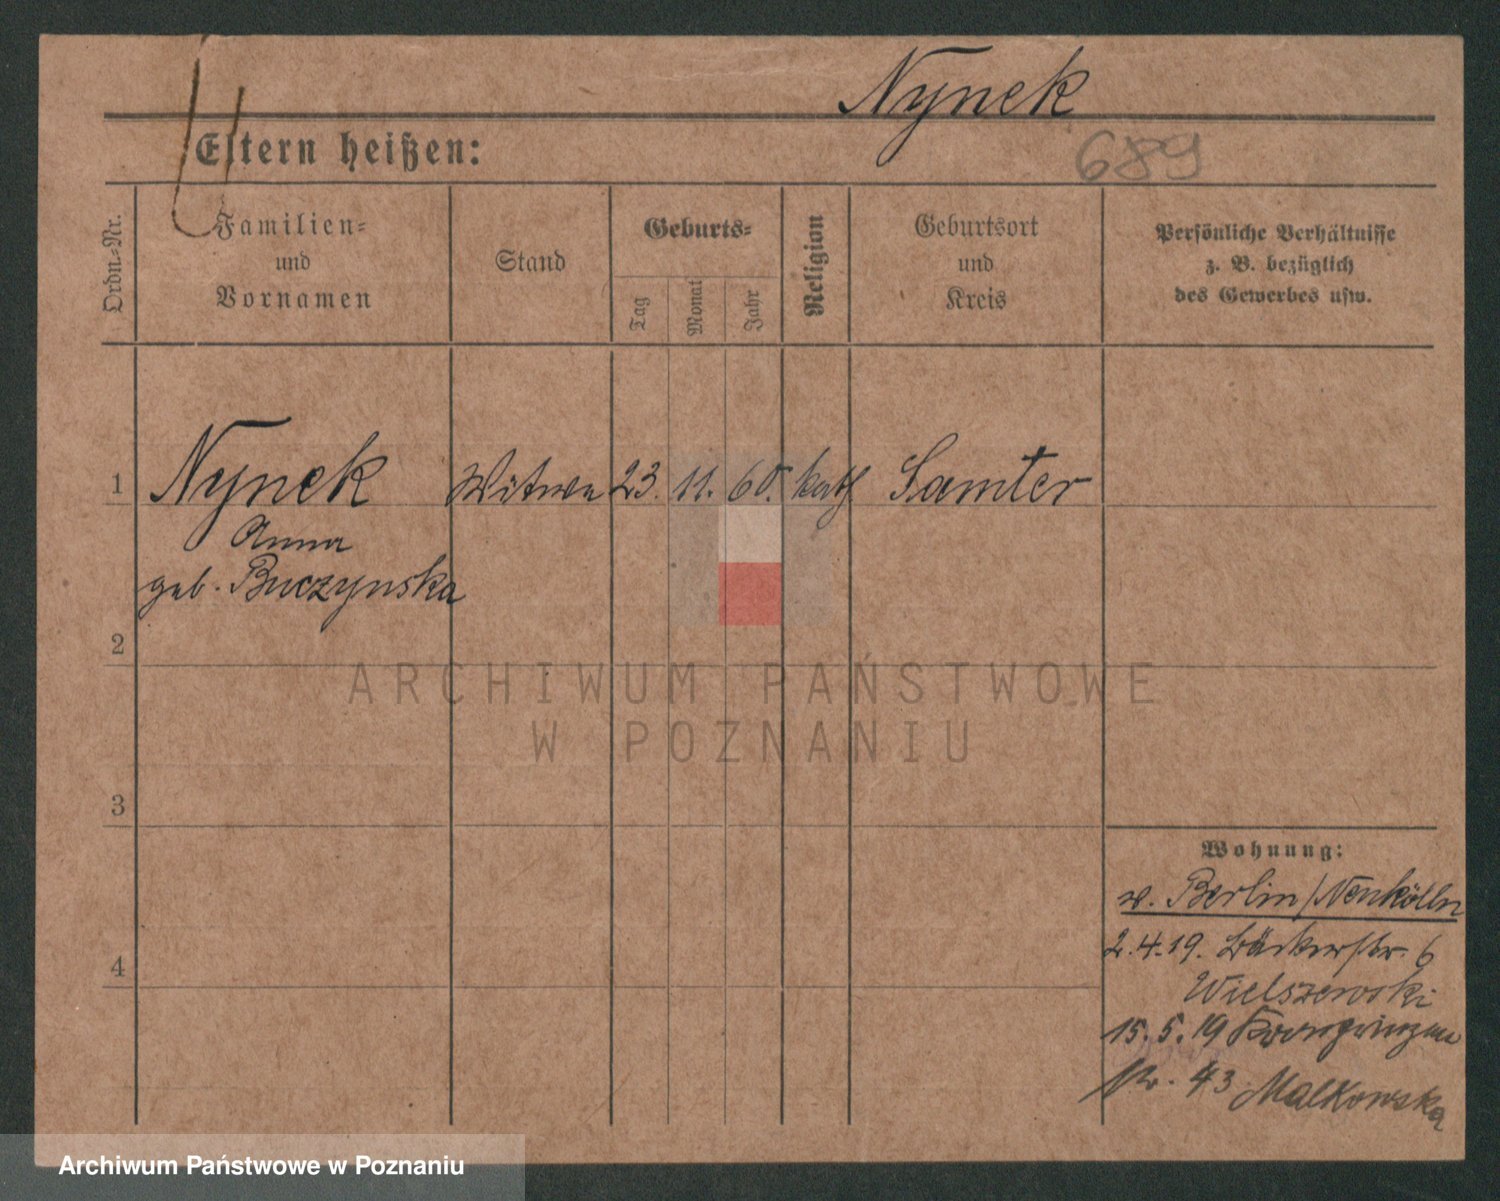 Nynek
689
Eltern heißen:
Ordn.-Nr.
Familien-
und
Vornamen
Stand
Geburts-
Tag
Monat
Jahr
Religion
Geburtsort
und
Kreis
Persönliche Verhältnisse
z. B. bezüglich
des Gewerbes usw.
1 Nynek Witwe 23. 11. 60. kath Samter
Anna
geb. Buczynska
2
ARCHIWUM PAŃSTWOWE
W POZNANIU
3
Wohnung:
v. Berlin/Neukölln
2.4.19. Bäckerstr. 6
4
Wielszewski
15.5.19 Kronprinzen
str. 43 Malkowska
Archiwum Państwowe w Poznaniu